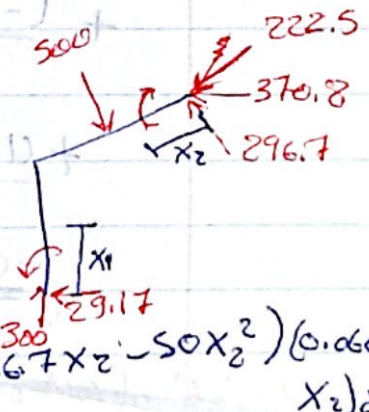 222.5
500
370.8
296.7
x₂
x₁
29.17
300
6.7x₂ - 50x₂²)(0.06
x₂)